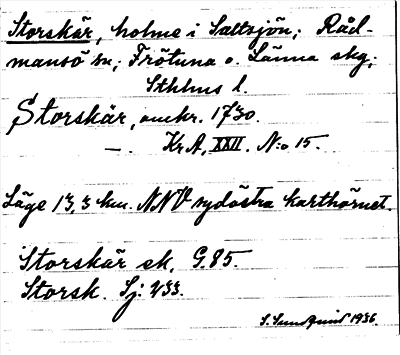 Storskär, holme i Saltsjön; Råd-
mansö sn; Frötuna o. Länna skg;
Sthlms l.
Storskär, omkr. 1730.
—. KrA, XXII. N:o 15.
Läge 13,3 km. NNV sydöstra karthörnet.
Storskär sk. G.85.
Storsk. Sj: 233.
S. Sundquist 1936.